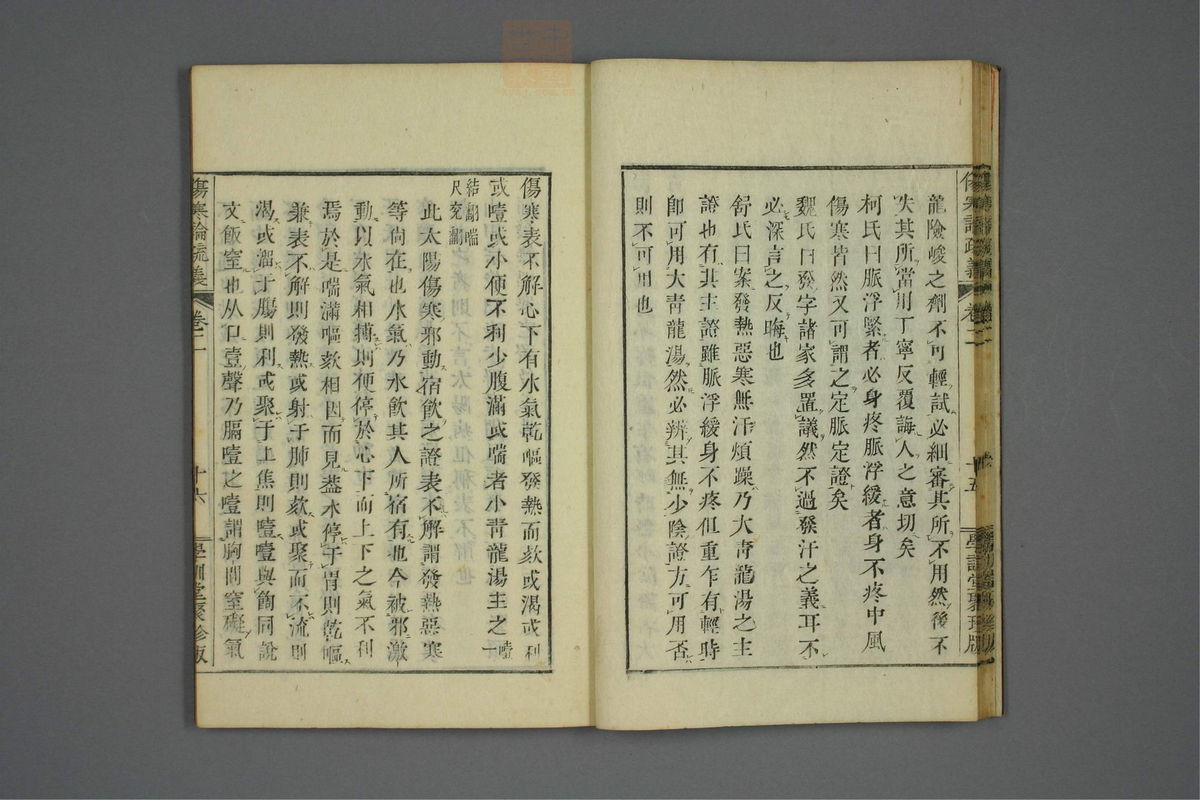 傷寒論疏義
卷二
十五
學訓堂聚珍版
龍險峻之劑不可輕試必細審其所不用然後不
失其所當用丁寧反覆誨人之意切矣
柯氏曰脈浮緊者必身疼脈浮緩者身不疼中風
傷寒皆然又可謂之定脈定證矣
魏氏曰發字諸家多置議然不過發汗之義耳不
必深言之反晦也
舒氏曰案發熱惡寒無汗煩躁乃大青龍湯之主
證也有其主證雖脈浮緩身不疼但重乍有輕時
即可用大青龍湯然必辨其無少陰證方可用否
則不可用也
傷寒表不解心下有水氣乾嘔發熱而欬或渴或利
或噎或小便不利少腹滿或喘者小青龍湯主之噎一
結翻喘
尺兗翻
此太陽傷寒邪動宿飲之證表不解謂發熱惡寒
等尚在也水氣乃水飲其人所宿有也今被邪激
動以水氣相搏則便停於心下而上下之氣不利
焉於是喘滿嘔欬相因而見蓋水停于胃則乾嘔
兼表不解則發熱或射于肺則欬或聚而不流則
渴或溜于腸則利或聚于上焦則噎噎與䭇同說
文飯窒也从口壹聲乃膈噎之噎謂胸間窒礙氣
傷寒論疏義
卷二
十六
學訓堂聚珍版